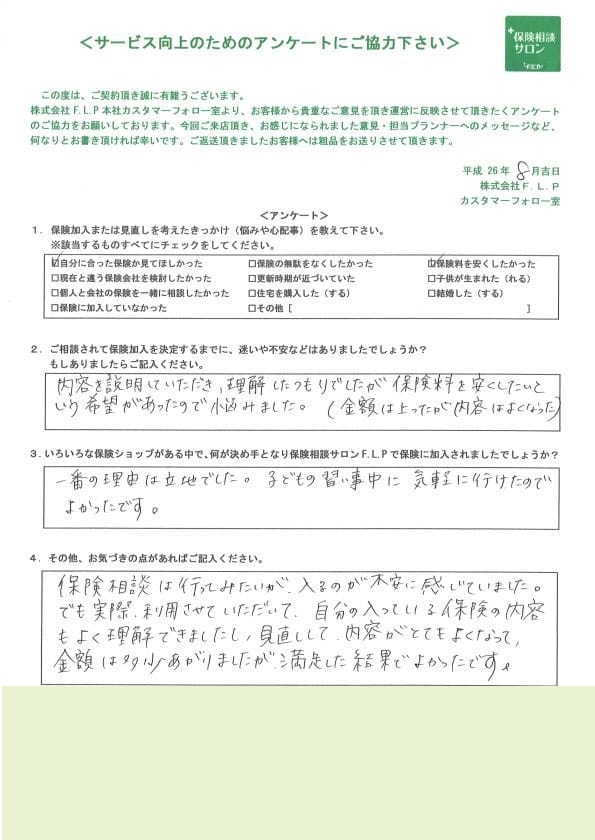 ＜サービス向上のためのアンケートにご協力下さい＞
保険相談
サロン
F.L.P
この度は、ご契約頂き誠に有難うございます。
株式会社F.L.P本社カスタマーフォロー室より、お客様から貴重なご意見を頂き運営に反映させて頂きたくアンケート
のご協力をお願いしております。今回ご来店頂き、お感じになられました意見・担当プランナーへのメッセージなど、
何なりとお書き頂ければ幸いです。ご返送頂きましたお客様へは粗品をお送りさせて頂きます。
平成 26年 8月吉日
株式会社F.L.P
カスタマーフォロー室
＜アンケート＞
1．保険加入または見直しを考えたきっかけ（悩みや心配事）を教えて下さい。
※該当するものすべてにチェックをしてください。
☑自分に合った保険か見てほしかった □保険の無駄をなくしたかった ☑保険料を安くしたかった
□現在と違う保険会社を検討したかった □更新時期が近づいていた □子供が生まれた（れる）
□個人と会社の保険を一緒に相談したかった □住宅を購入した（する） □結婚した（する）
□保険に加入していなかった □その他［ ］
2．ご相談されて保険加入を決定するまでに、迷いや不安などはありましたでしょうか？
もしありましたらご記入ください。
内容を説明していただき、理解したつもりでしたが保険料を安くしたいと
いう希望があったので悩みました。（金額は上ったが内容はよくなった）
3．いろいろな保険ショップがある中で、何が決め手となり保険相談サロンF.L.Pで保険に加入されましたでしょうか？
一番の理由は立地でした。子どもの習い事中に気軽に行けたので
よかったです。
4．その他、お気づきの点があればご記入ください。
保険相談は行ってみたいが、入るのが不安に感じていました。
でも実際、利用させていただいて、自分の入っている保険の内容
もよく理解できましたし、見直しして、内容がとてもよくなって、
金額は多少あがりましたが、満足した結果でよかったです。